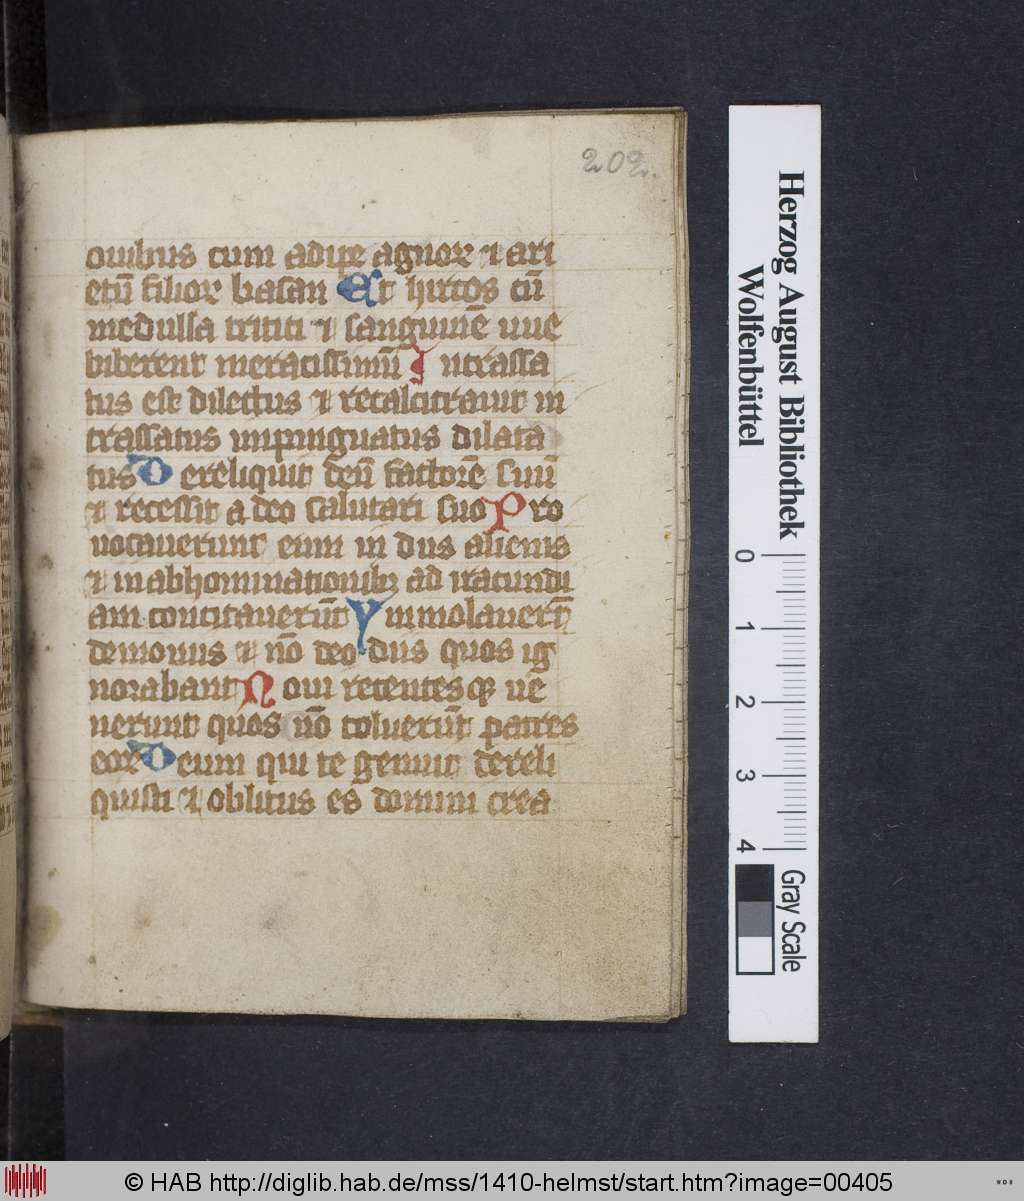 202.
ouibus cum adipe agnoꝝ ⁊ ari
etū filioꝝ basan Et hircos cū
medulla tritici ⁊ sanguinē uue
biberent meracissimū Incrassa
tus est dilectus ⁊ recalcitrauit in
crassatus inpinguatus dilata
tus Dereliquit deū factorē suū
⁊ recessit a deo salutari suo Pro
uocauerunt eum in diis alienis
⁊ in abhominationibꝫ ad iracundi
am concitauerūt Ymmolauerūt
demoniis ⁊ nō deo diis quos ig
norabant Noui recentesqꝫ ue
nerunt quos nō coluerūt patres
eoꝝ Deum qui te genuit dereli
quisti ⁊ oblitus es domini crea
Herzog August Bibliothek
Wolfenbüttel
0 1 2 3 4
Gray Scale
© HAB http://diglib.hab.de/mss/1410-helmst/start.htm?image=00405